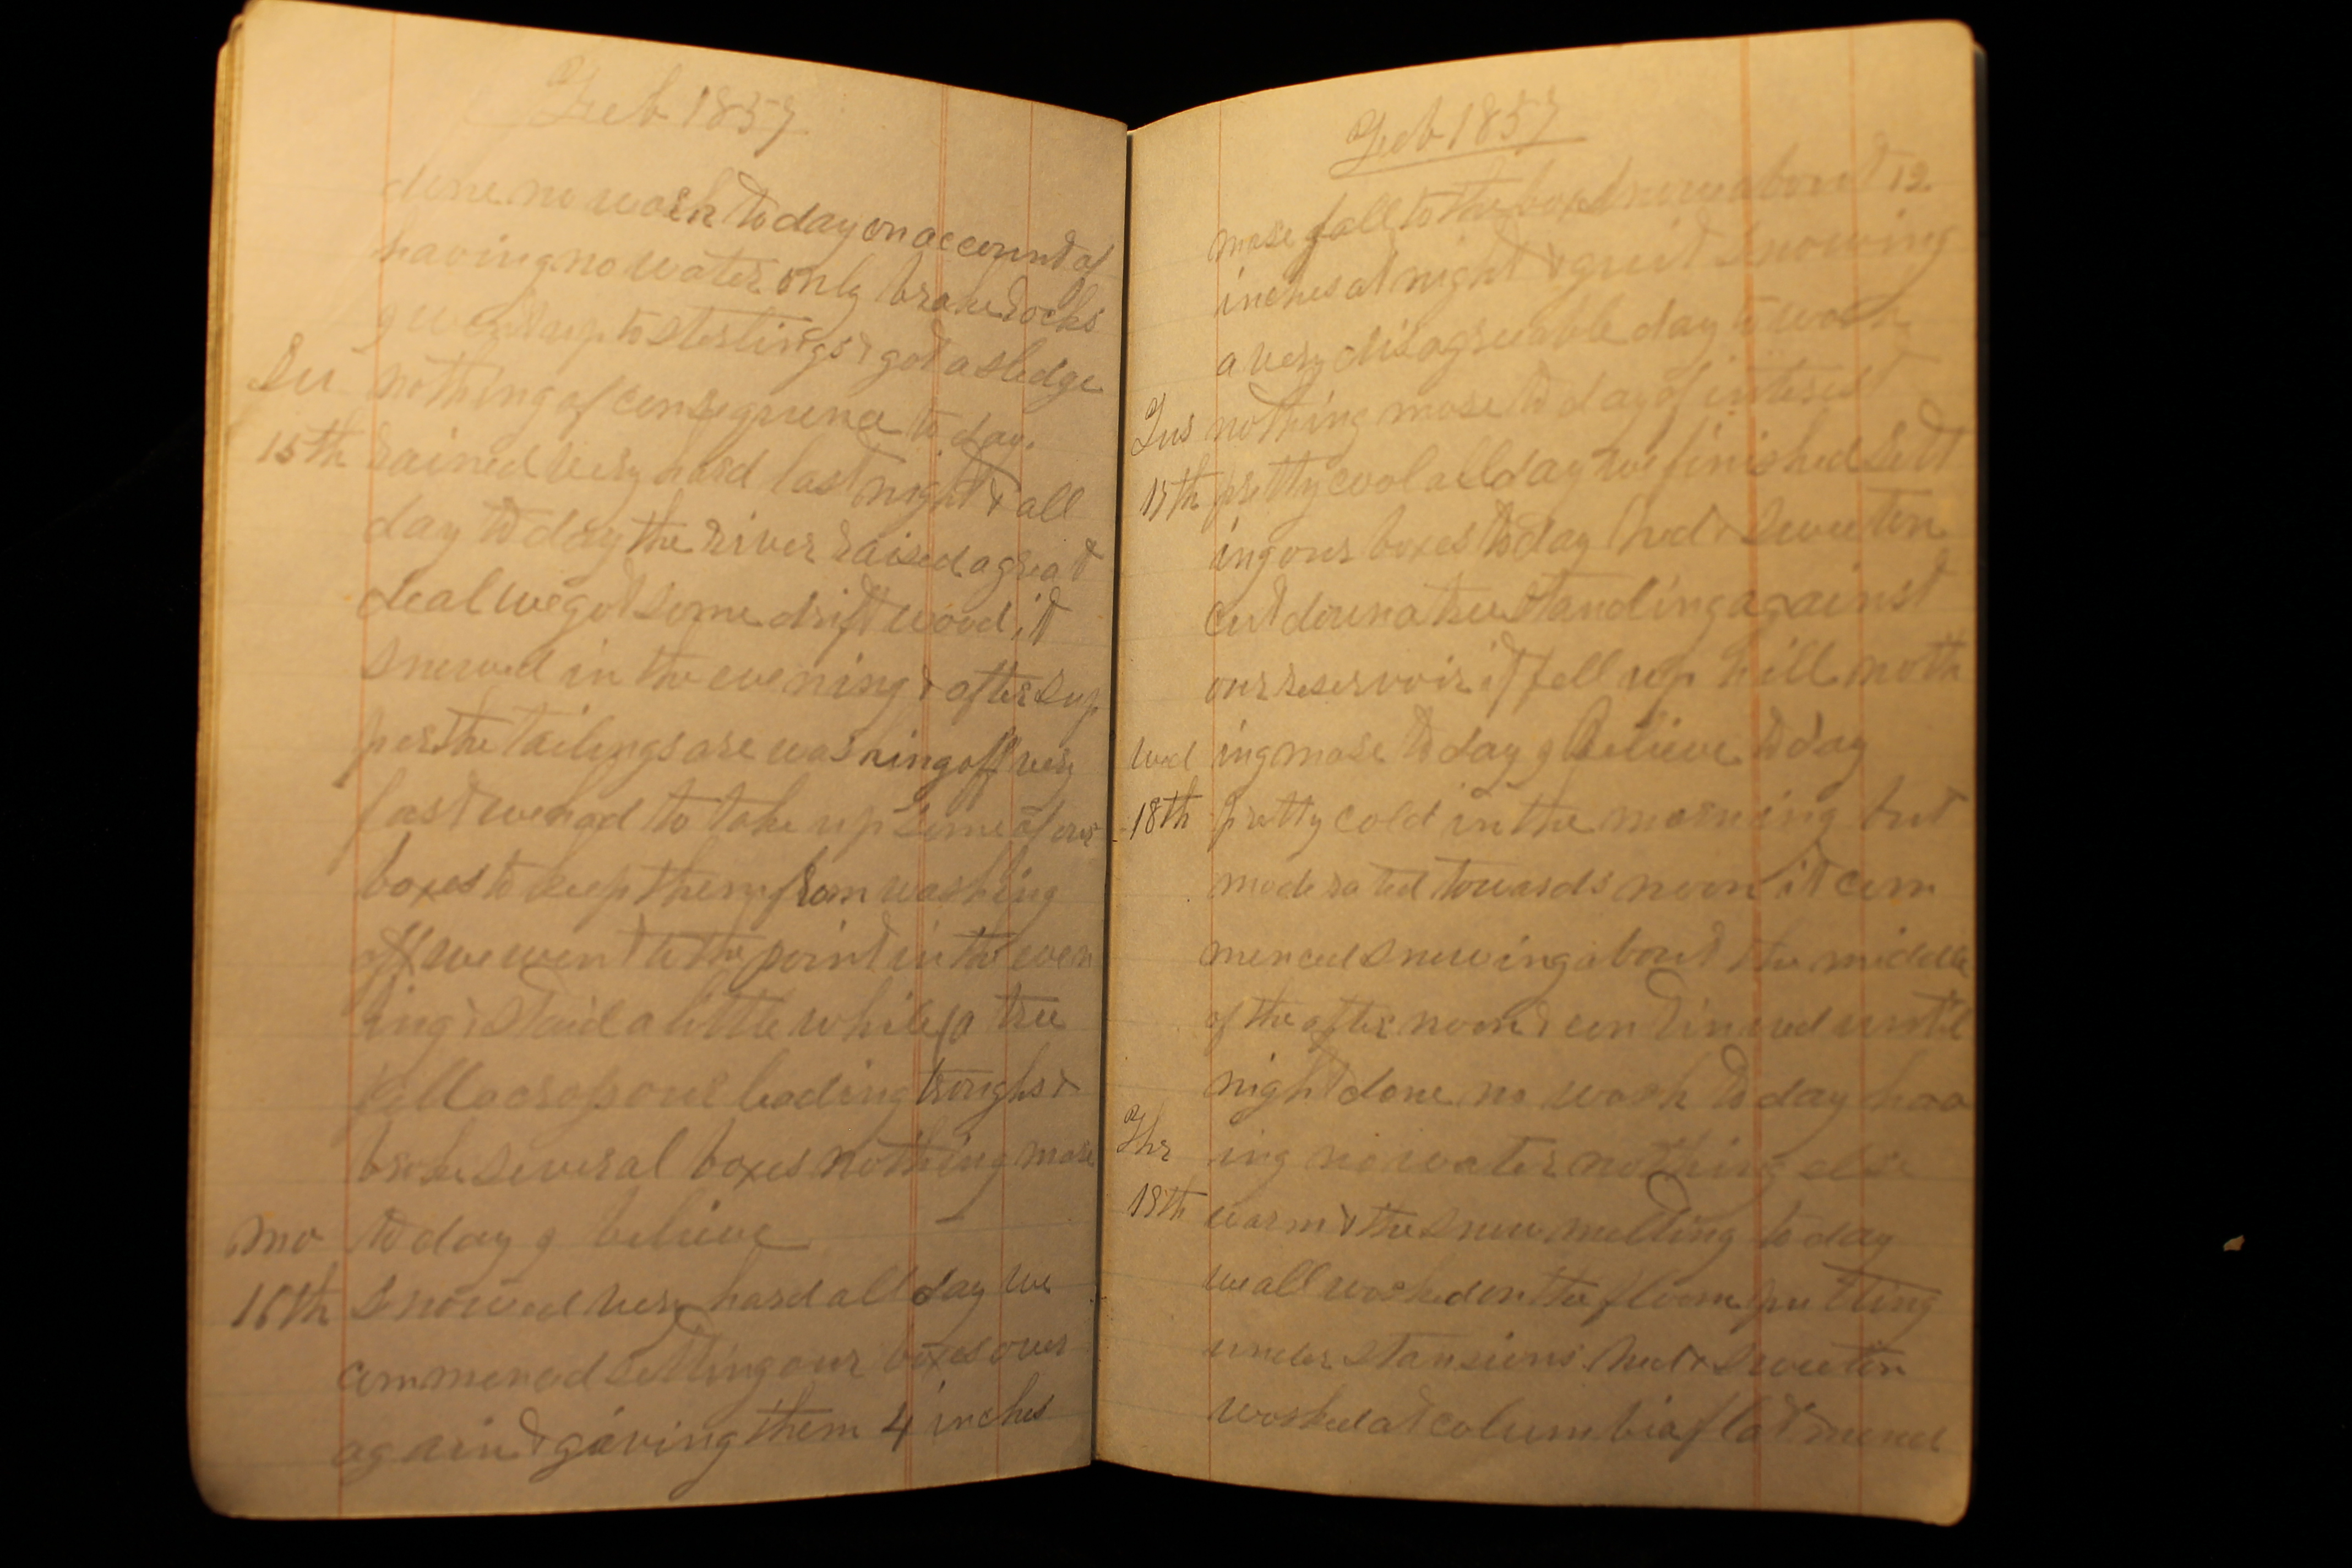 Feb 1857
done no work to day on account of
having no water only brake rocks
g went up to sterlings & got a sledge
Su nothing of consequence to day.
15th rained very hard last night & all
day to day the river raised a great
deal we got some drift wood it
snowed in the evening & after sup
per the tailings are washing off very
fast we had to take up some of our
boxes to keep them from washing
off we went to the point in the even
ing & staid a little while a tree
fell across our leading troughs &
broke several boxes nothing more
Mo to day g believe
16th Snowed very hard all day we
commenced setting our boxes over
again & giving them 4 inches
Feb 1857
more fall to the box snow about 12
inches at night & quit snowing
a very disagreeable day to work
Tus nothing more to day of interest
17th pretty cool all day we finished sett
ing our boxes to day hed & Sweeten
cut down a tree standing against
our reservoir it fell up hill noth
Wed ing more to day g Believe to day
18th pretty cold in the morning but
moderated towards noon it com
menced snowing about the middle
of the after noon & continued until
night done no work to day hav
Thr ing no water nothing else
19th warm & the snow melting to day
we all worked on the floom putting
under stansions hed & Sweeten
worked at columbia flat mend